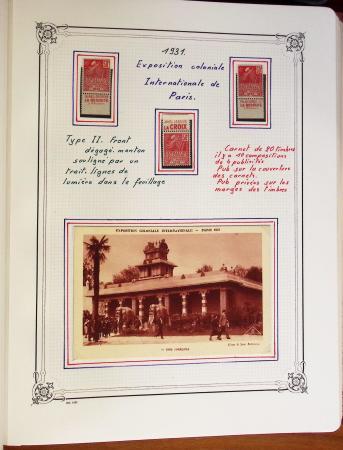 1931.
Exposition coloniale
Internationale de
Paris.
LA CROIX
Type II. Front
dégagé. menton
souligné par un
trait. lignes de
lumière dans le feuillage
Carnet de 20 timbres
il y a 10 compositions
de 4 publicités
Pub sur la couverture
des carnets.
Pub privées sur les
marges des timbres
EXPOSITION COLONIALE INTERNATIONALE — PARIS 1931